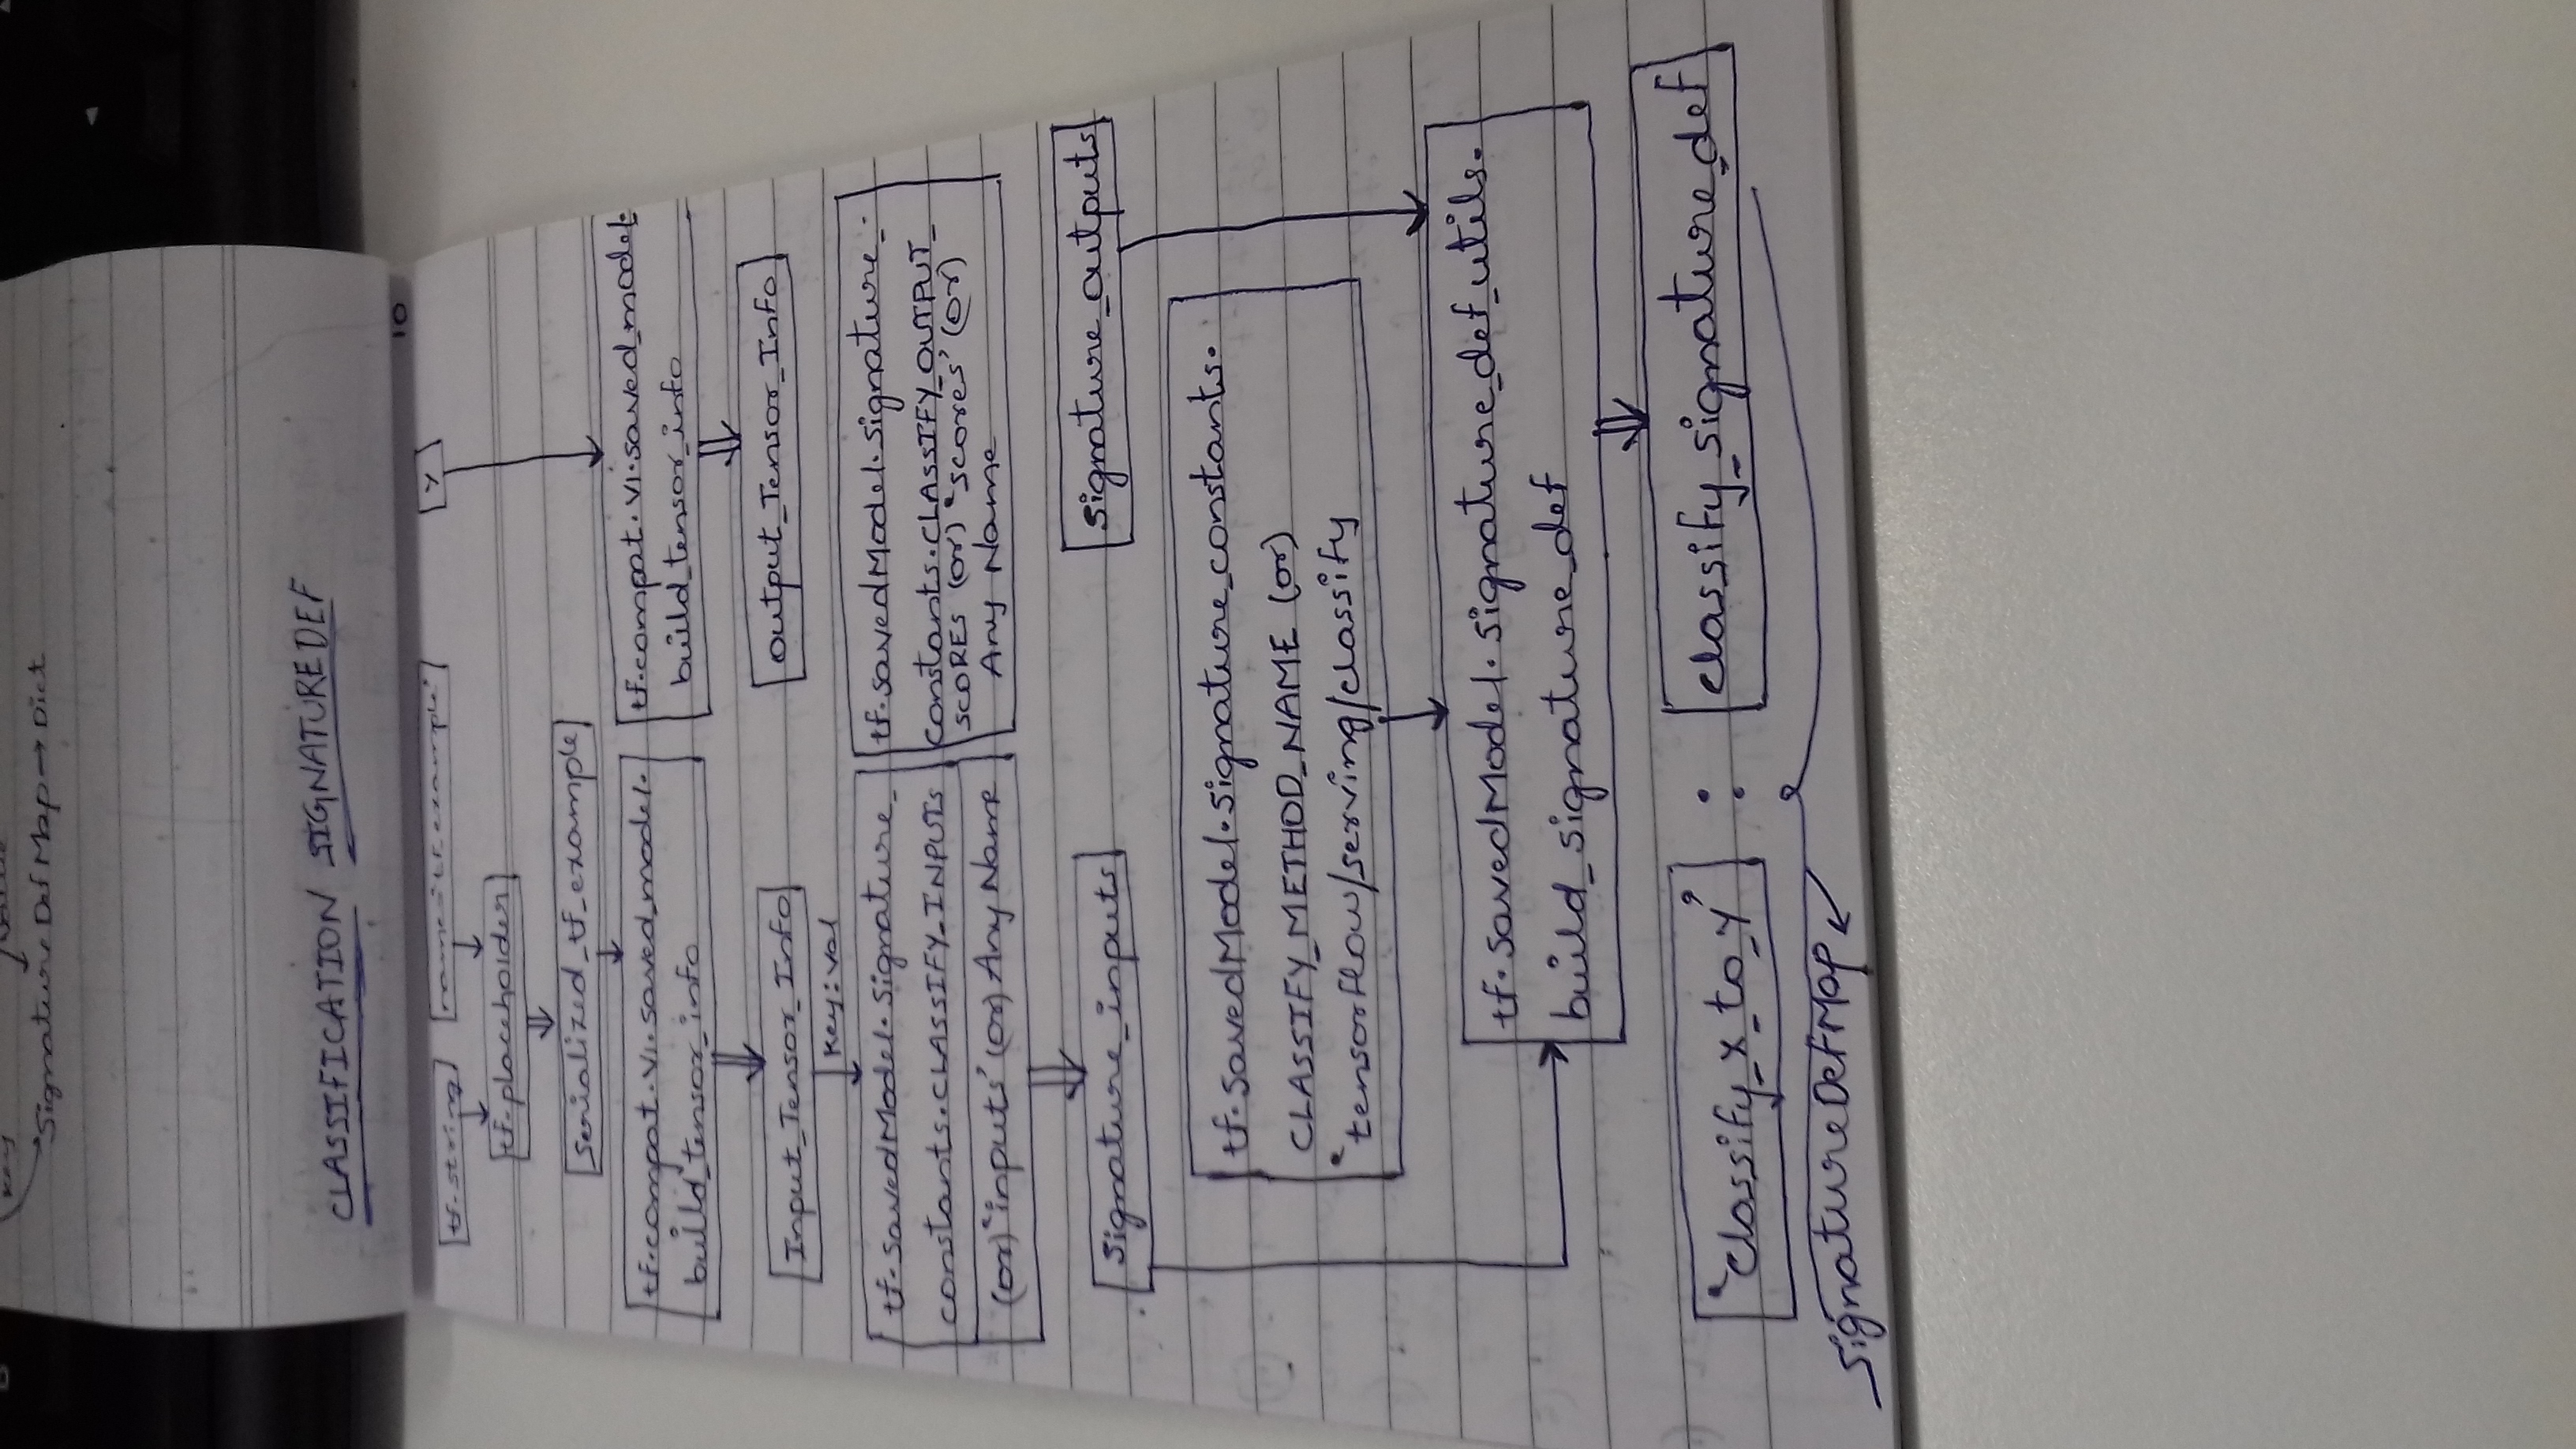 Key Value
Signature Def Map → Dict
CLASSIFICATION SIGNATUREDEF
10
tf.string name="tf_example" Y
tf.placeholder
Serialized_tf_example
tf.compat.v1.saved_model.
build_tensor_info
tf.compat.v1.saved_model.
build_tensor_info
Input_Tensor_Info
Output_Tensor_Info
Key:val
tf.SavedModel.Signature_
constants.CLASSIFY_INPUTS
(or) 'inputs' (or) Any Name
tf.savedModel.signature_
constants.CLASSIFY_OUTPUT_
SCORES (or) 'scores' (or)
Any Name
Signature_inputs
Signature_outputs
tf.SavedModel.Signature_constants.
CLASSIFY_METHOD_NAME (or)
'tensorflow/serving/classify
tf.SavedModel.signature_def_utils.
build_signature_def
'classify_x_to_y' : classify_signature_def
SignatureDefMap